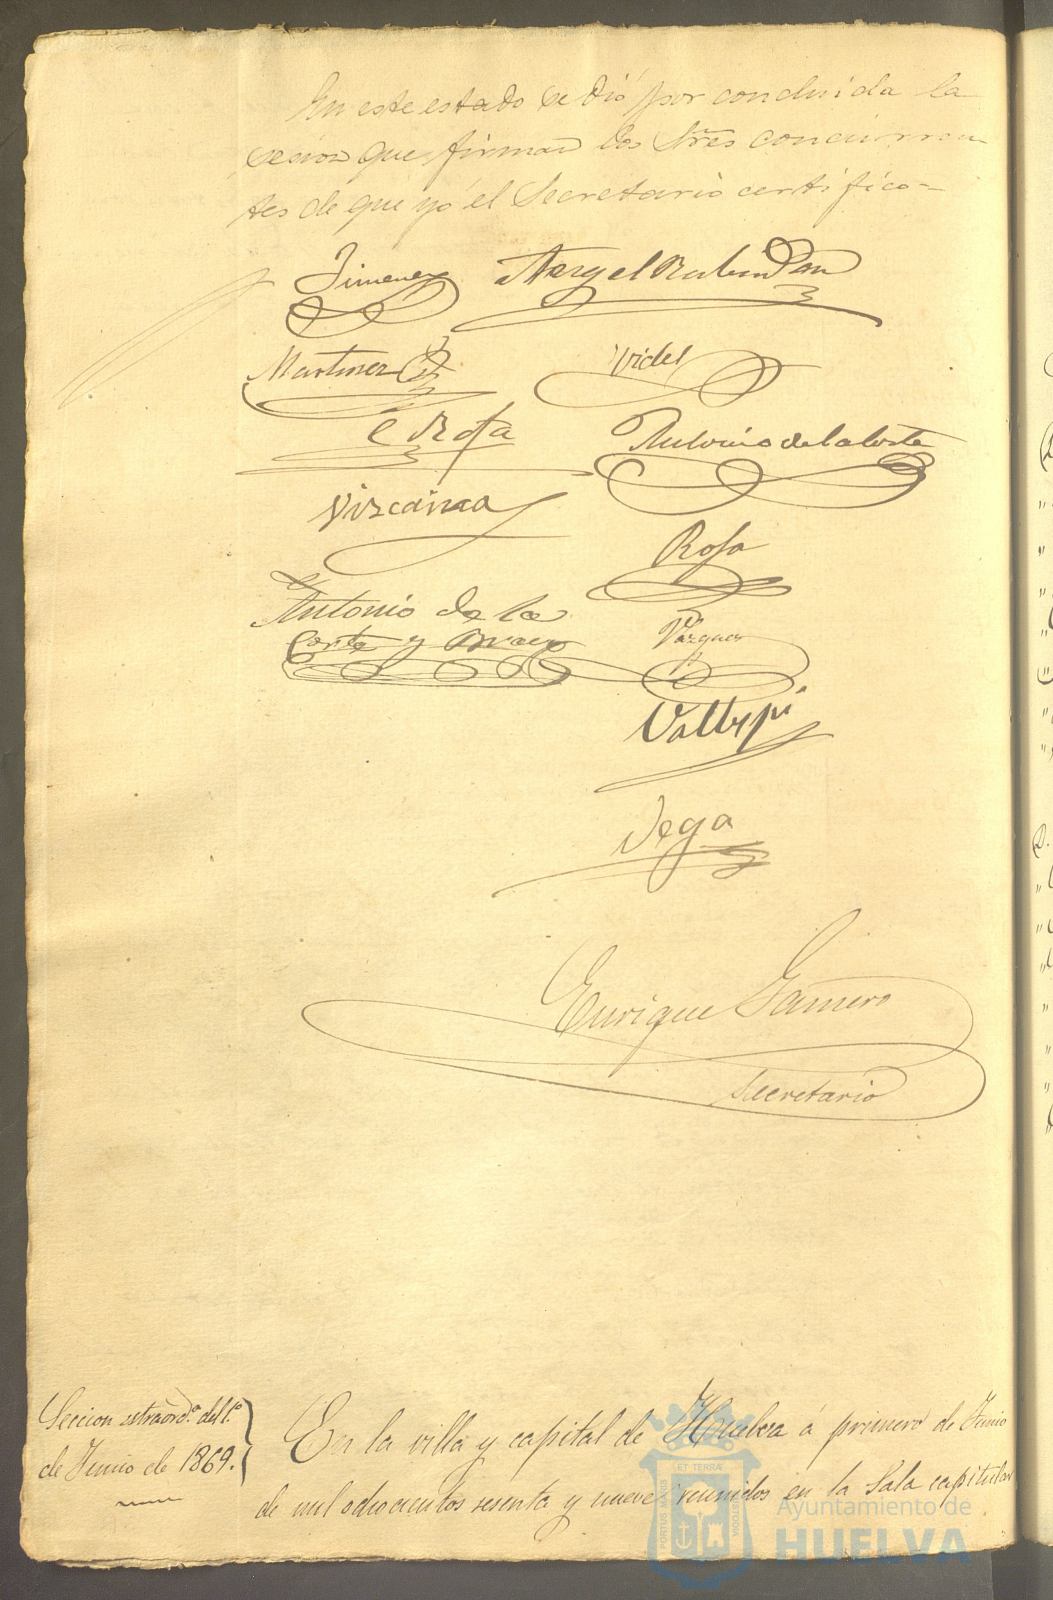 En este estado se dió por concluida la
sesion que firman los Sres concurren
tes de que yó el Secretario certifico=
Jimenez Angel Ruben
Martinez Videl
Rofa Antonio de la Corte
Vizcaina
Rofa
Antonio de la
Corte y Bravo
Vazquez
Vega
Enrique Gamero
Secretario
Seccion estraord.ª del 1.º
de Junio de 1869.
En la villa y capital de Huelva á primero de Junio
de mil ochocientos sesenta y nueve reunidos en la Sala capitular
PORTUS MARIS
ET TERRÆ
CUSTODIA
Ayuntamiento de
HUELVA